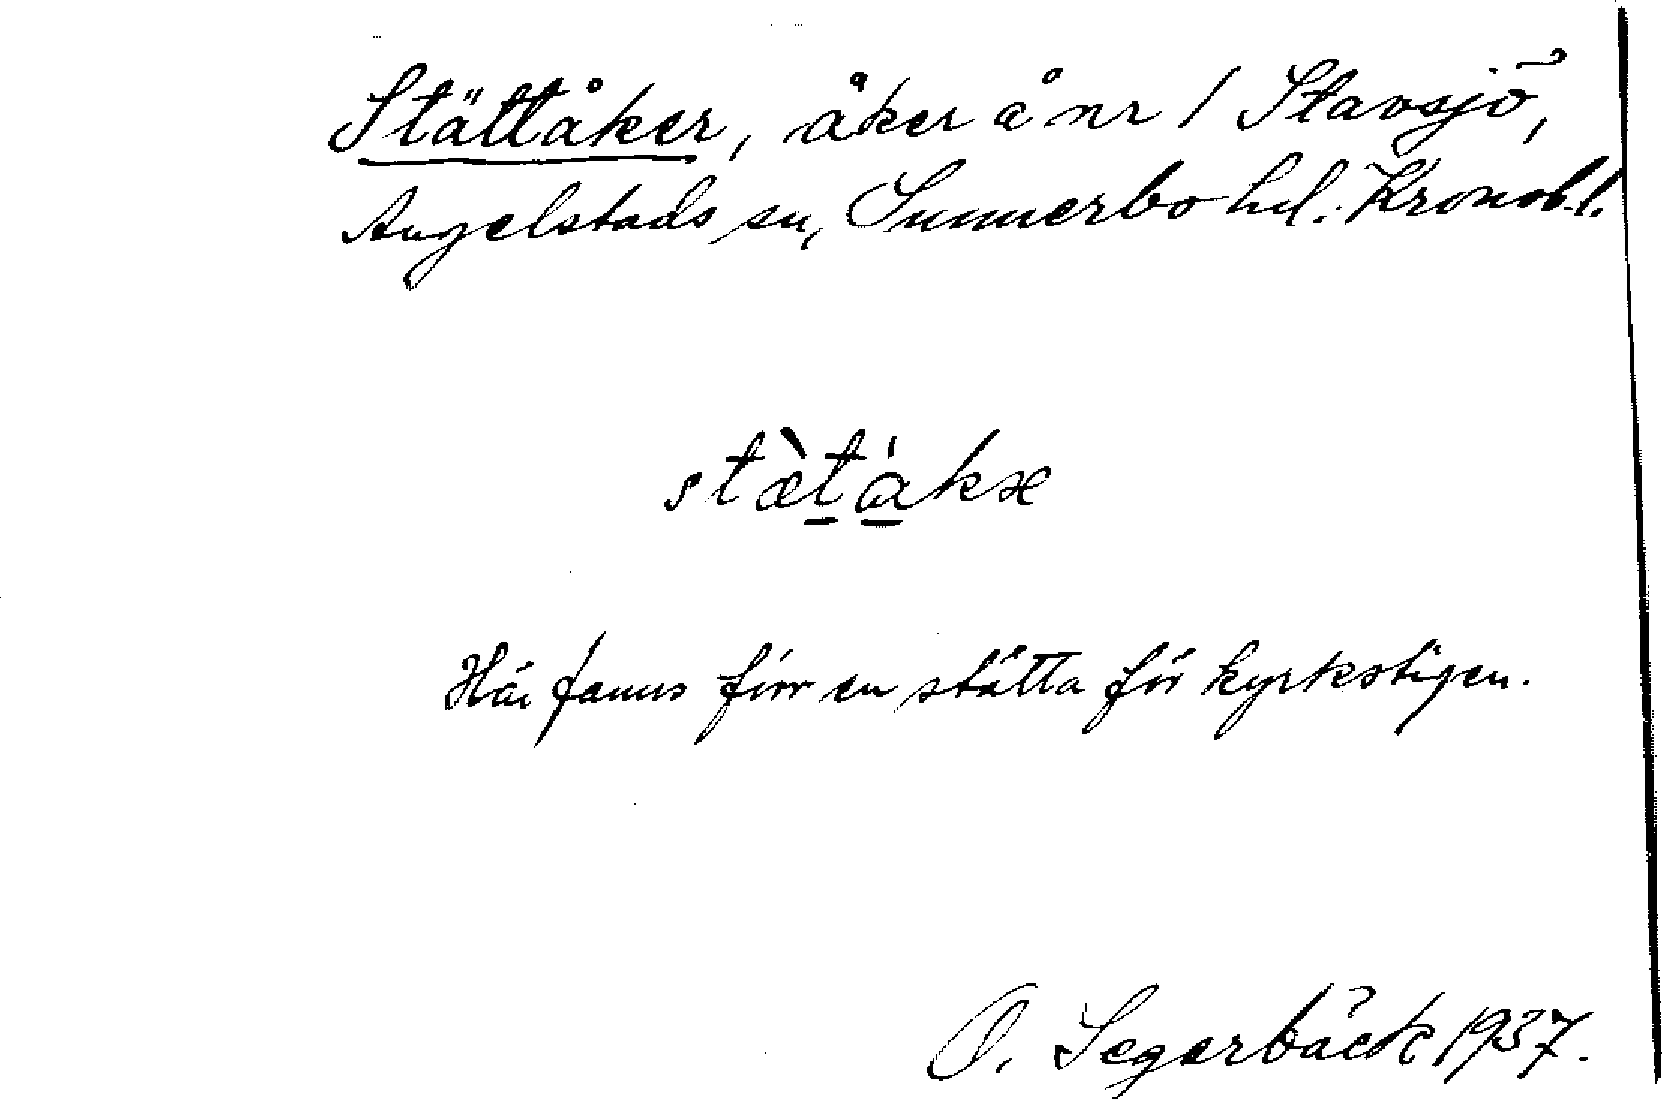 Stättåker, åker å nr 1 Stavsjö,
Angelstads sn, Sunnerbo hd. Kronob. l.
stæ̀t̲a̲̍kæ
Här fanns förr en stätta för kyrkstigen.
O. Segerbäck 1937.